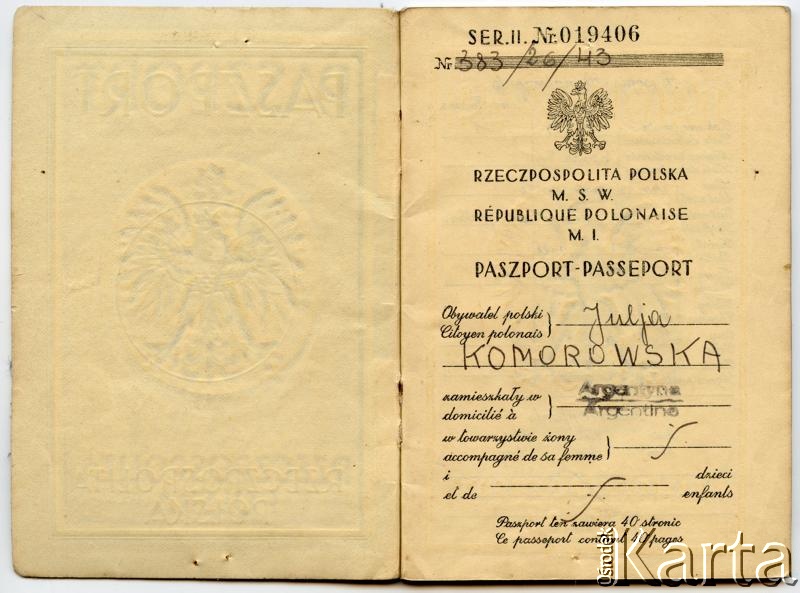 PASZPORT
RZECZPOSPOLITA
POLSKA
SER. II. Nr. 019406
Nr 383/26/43
RZECZPOSPOLITA POLSKA
M. S. W.
RÉPUBLIQUE POLONAISE
M. I.
PASZPORT-PASSEPORT
Obywatel polski
Citoyen polonais } Julja
KOMOROWSKA
zamieszkały w } Argentyna
domicilié à Argentine
w towarzystwie żony
accompagné de sa femme }
i dzieci
et de enfants
Paszport ten zawiera 40 stronic
Ce passeport contient 40 pages
Ośrodek Karta